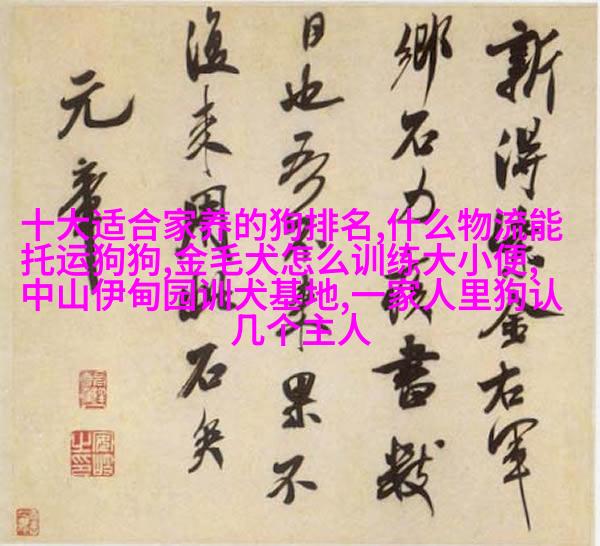 十大适合家养的狗排名,什么物流能
托运狗狗,金毛犬怎么训练大小便,
中山伊甸园训犬基地,一家人里狗认
几个主人
新得紫金右軍
鄉石力疾書數
日也吾不來果不
復來用石矣
元章